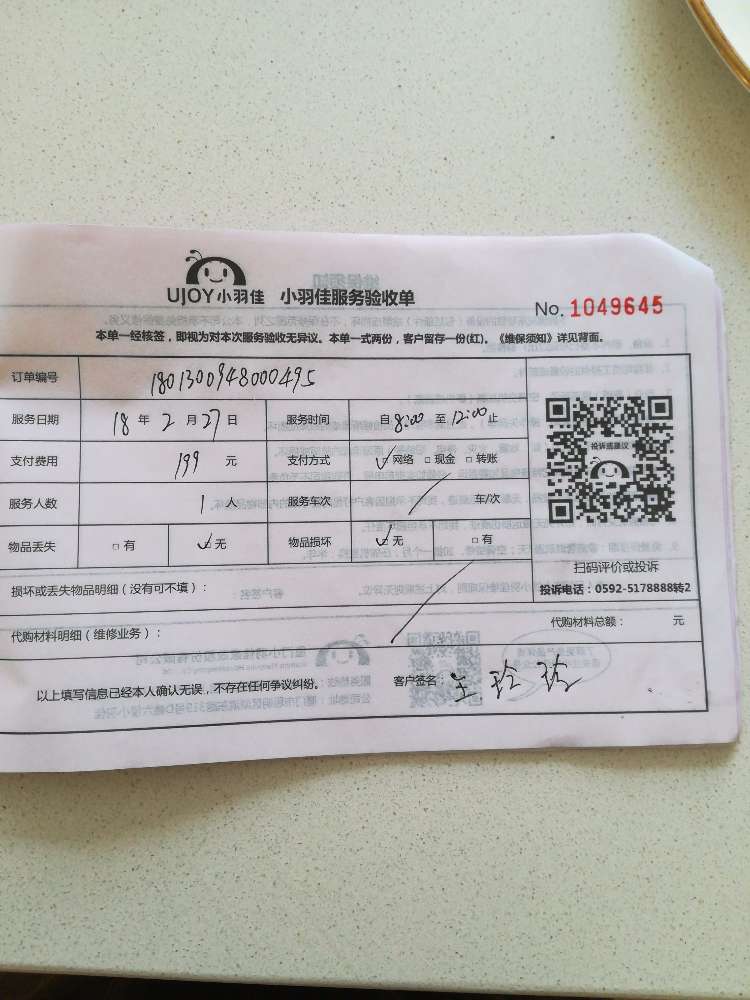 UJOY小羽佳 小羽佳服务验收单 No. 1049645
本单一经核签，即视为对本次服务验收无异议。本单一式两份，客户留存一份(红)。《维保须知》详见背面。
订单编号 1801300948000495
服务日期 18 年 2 月 27 日 服务时间 自 8:00 至 12:00 止
投诉或建议
支付费用 199 元 支付方式 ☑网络 □现金 □转账
服务人数 1 人 服务车次 / 车/次
物品丢失 □有 ☑无 物品损坏 ☑无 □有
扫码评价或投诉
投诉电话：0592-5178888转2
损坏或丢失物品明细（没有可不填）：
代购材料明细（维修业务）： 代购材料总额： 元
以上填写信息已经本人确认无误，不存在任何争议纠纷。 客户签名：王玲玲